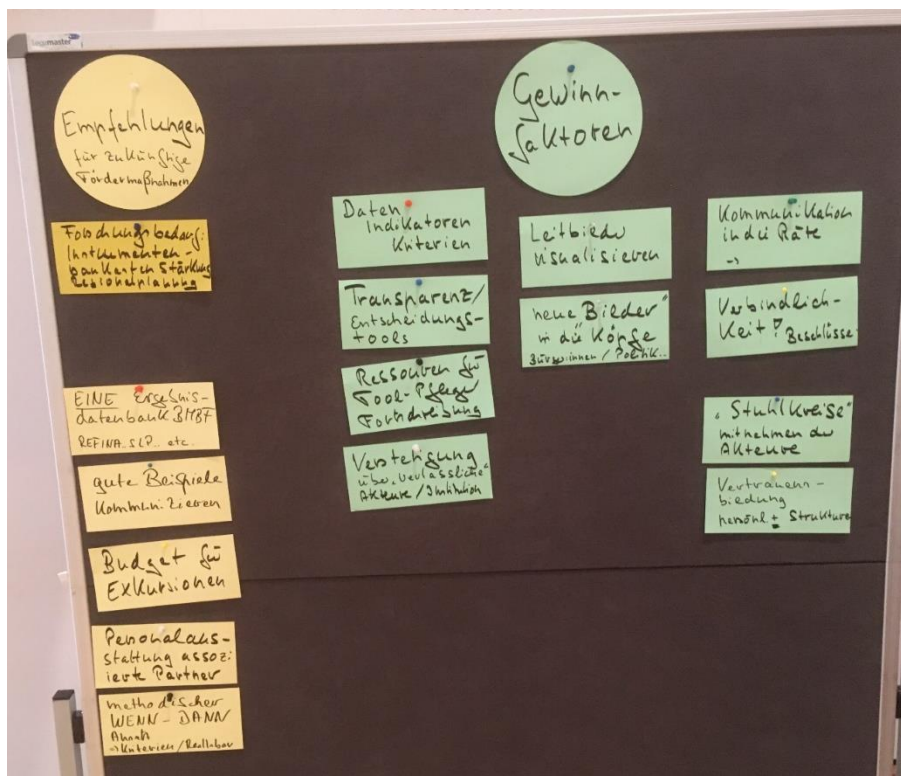 legamaster
Empfehlungen
für zukünftige
Fördermaßnahmen
Forschungsbedarf:
Instrumenten-
baukasten Stärkung
Regionalplanung
EINE Ergebnis-
datenbank BMBF
REFINA, SLP.. etc.
gute Beispiele
kommunizieren
Budget für
Exkursionen
Personalaus-
stattung assozi-
ierte Partner
methodischer
WENN - DANN
→ Kriterien / Reallabor
Gewinn-
faktoren
Daten,
Indikatoren
Kriterien
Transparenz /
Entscheidungs-
tools
Ressourcen für
Tool-Pflege
Fortschreibung
Verstetigung
über „verlässliche"
Akteure / Institution
Leitbilder
visualisieren
neue Bilder"
in die Köpfe
Bürgerinnen / Politik..
Kommunikation
in die Räte
→
Verbindlich-
keit? Beschlüsse
„Stuhlkreise"
mitnehmen der
Akteure
Vertrauens-
bildung
persönl. + Strukturen